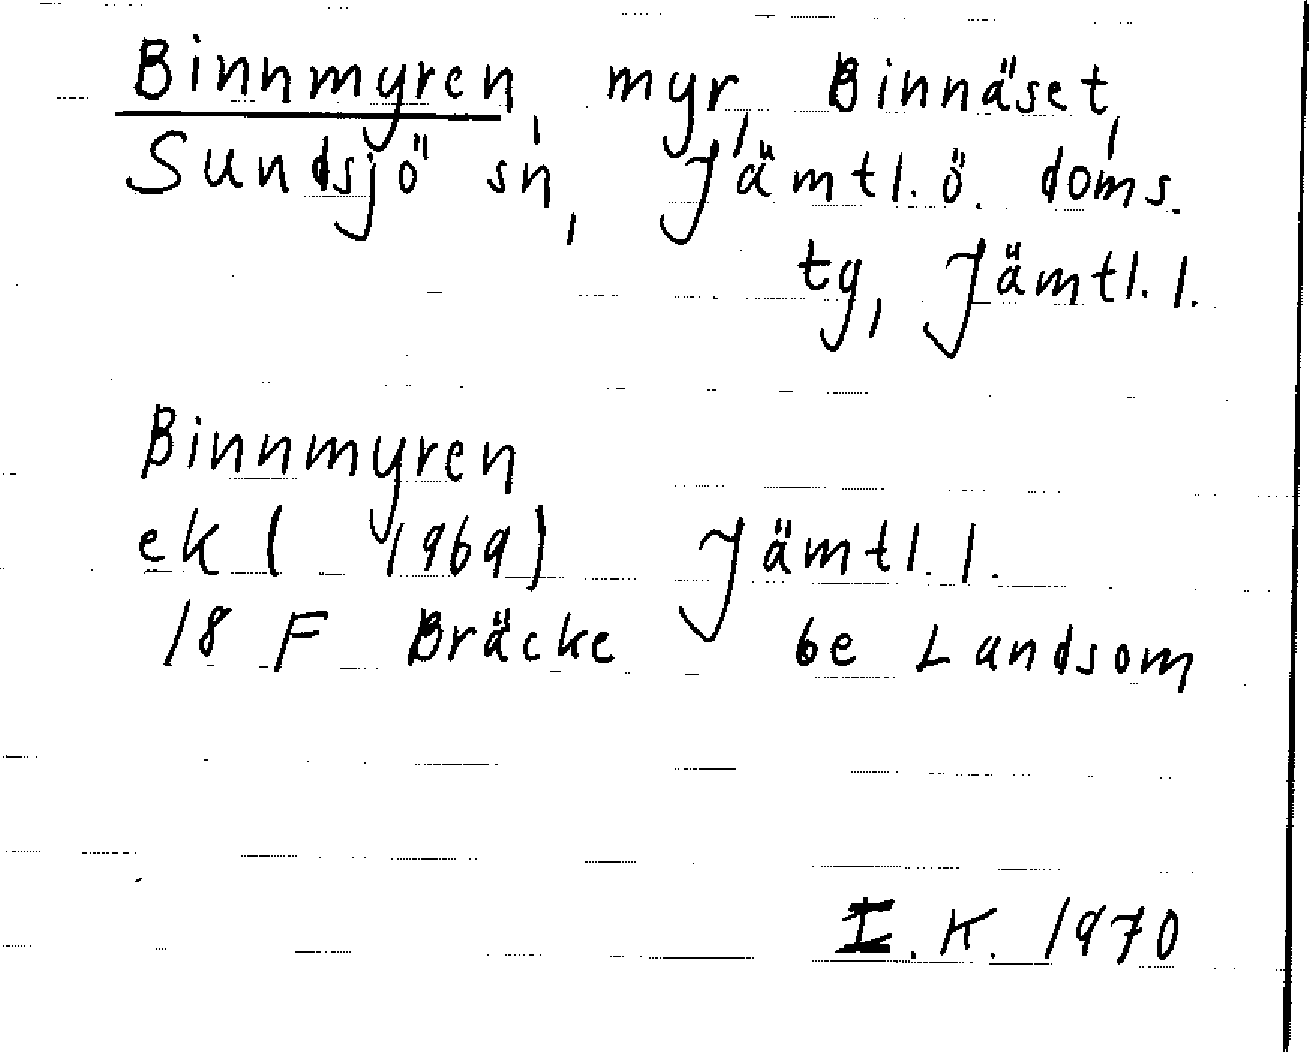 Binnmyren, myr, Binnäset,
Sundsjö sn, Jämtl. ö. doms.
tg, Jämtl. l.
Binnmyren
ek ( 1969) Jämtl. l.
18 F Bräcke 6e Landsom
I.K. 1970